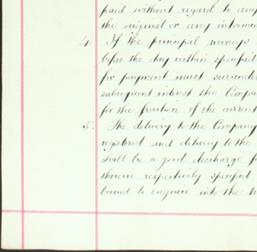 paid without regard to any
the original or any interme
4. If the principal moneys
before the day within specified
for payment must surrender
subsequent interest the Compa
for the fraction of the current
5. The delivery to the Company
registered and delivery to the
shall be a good discharge f
therein respectively specified
bound to enquire into the